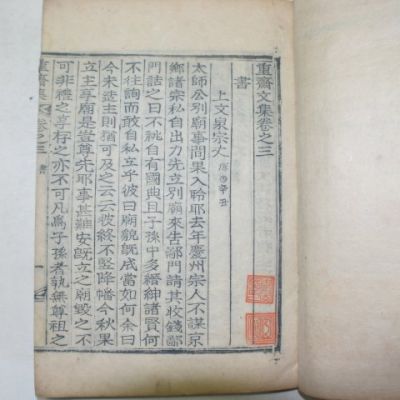 重齋文集卷之三
書
上文泉宗丈
辛丑
太師公別廟事間果入聆耶去年慶州宗人不謀京
鄕諸宗私自出力先立別廟來告鄙門請其收錢鄙
門詰之曰不祧自有國典且子孫中多縉紳諸賢何
不往詢而敢自私立乎彼曰廟貌旣成當如何余曰
今未造主則猶可及止之云云彼終不竪降幡今秋果
立主享廟是豈尊先耶事甚難安旣立之廟毁之不
可非禮之享存之亦不可凡爲子孫者孰無尊祖之
重齋集 卷之三 書